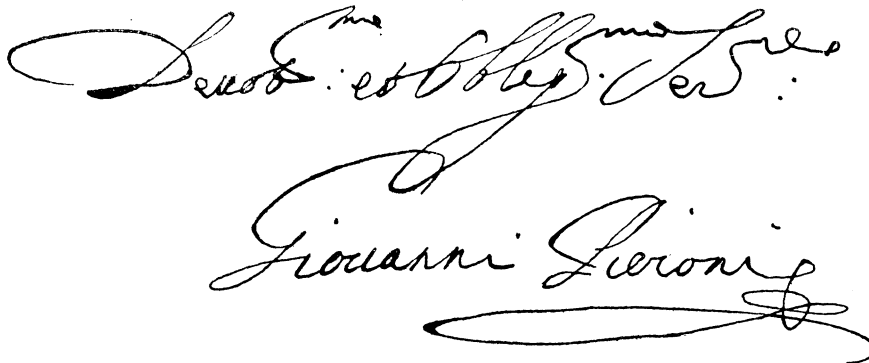 Deuot.mo: et Obblig.mo Ser.re:
Giouanni Pieroni